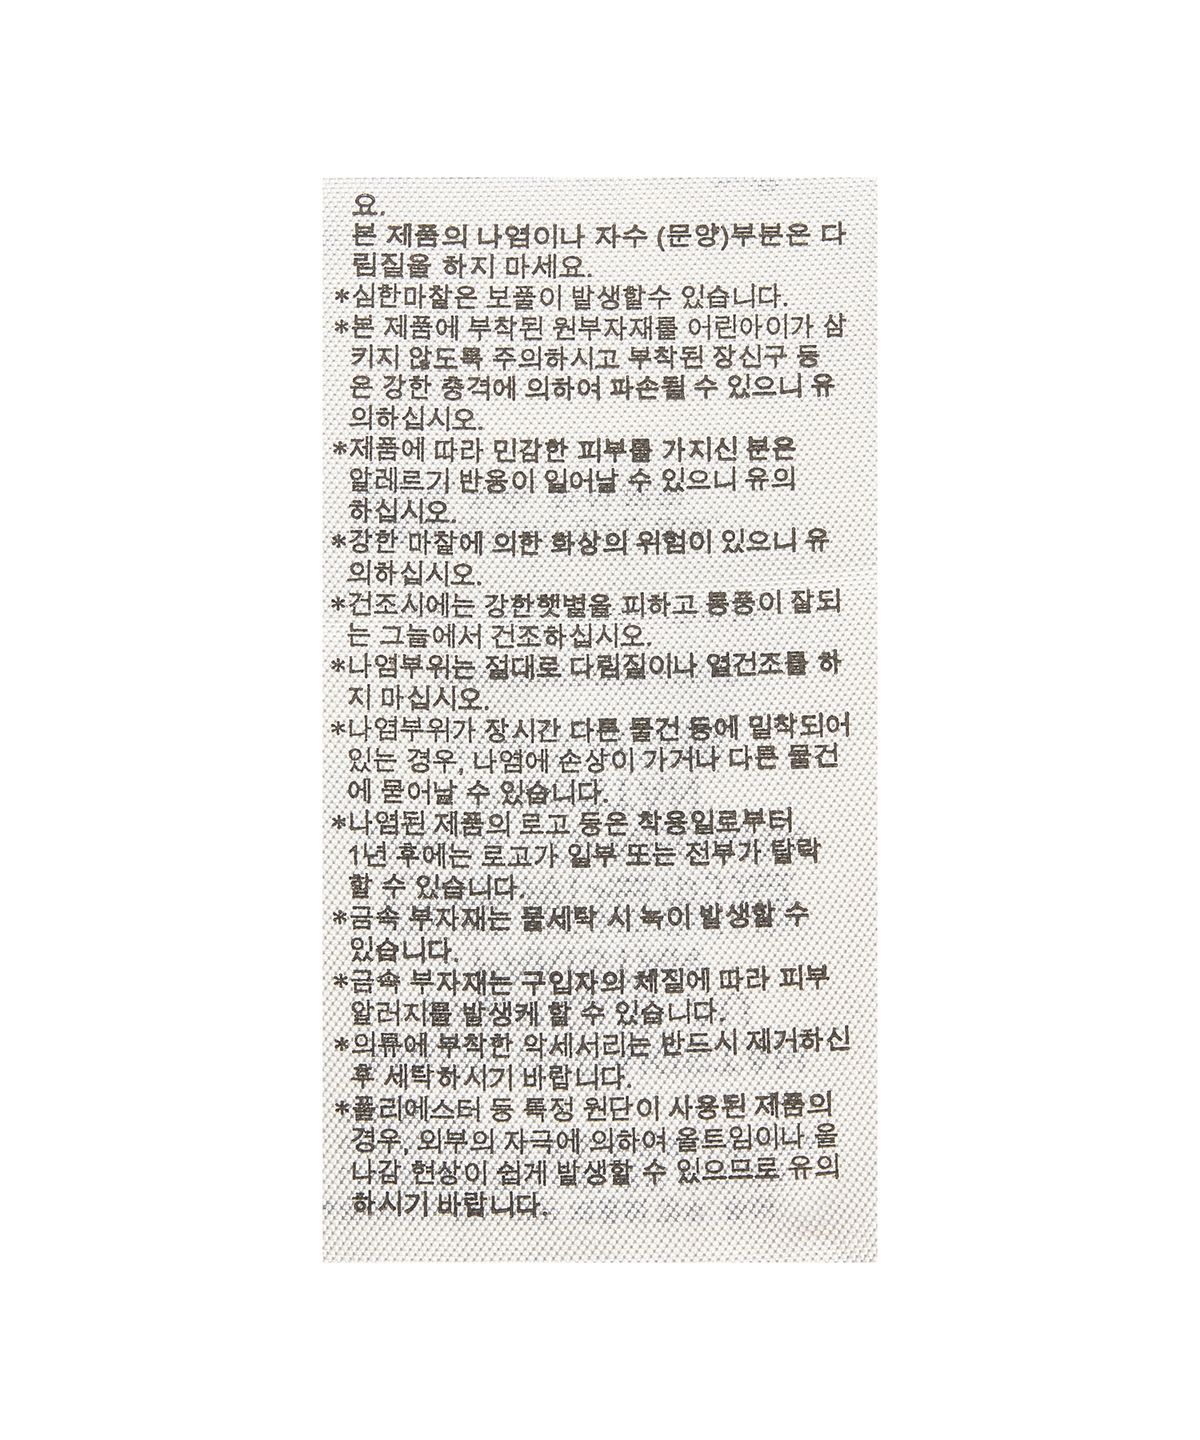 요.
본 제품의 나염이나 자수 (문양)부분은 다
림질을 하지 마세요.
*심한마찰은 보풀이 발생할수 있습니다.
*본 제품에 부착된 원부자재를 어린아이가 삼
키지 않도록 주의하시고 부착된 장신구 등
은 강한 충격에 의하여 파손될 수 있으니 유
의하십시오.
*제품에 따라 민감한 피부를 가지신 분은
알레르기 반응이 일어날 수 있으니 유의
하십시오.
*강한 마찰에 의한 화상의 위험이 있으니 유
의하십시오.
*건조시에는 강한햇볕을 피하고 통풍이 잘되
는 그늘에서 건조하십시오.
*나염부위는 절대로 다림질이나 열건조를 하
지 마십시오.
*나염부위가 장시간 다른 물건 등에 밀착되어
있는 경우, 나염에 손상이 가거나 다른 물건
에 묻어날 수 있습니다.
*나염된 제품의 로고 등은 착용일로부터
1년 후에는 로고가 일부 또는 전부가 탈락
할 수 있습니다.
*금속 부자재는 물세탁 시 녹이 발생할 수
있습니다.
*금속 부자재는 구입자의 체질에 따라 피부
알러지를 발생케 할 수 있습니다.
*의류에 부착한 악세서리는 반드시 제거하신
후 세탁하시기 바랍니다.
*폴리에스터 등 특정 원단이 사용된 제품의
경우, 외부의 자극에 의하여 올트임이나 올
나감 현상이 쉽게 발생할 수 있으므로 유의
하시기 바랍니다.